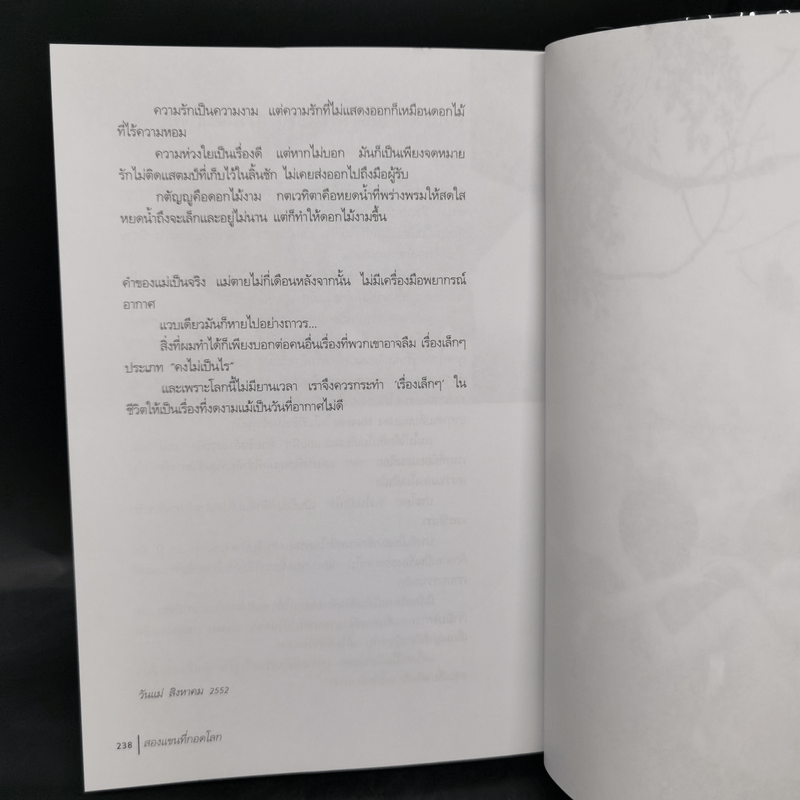 ความรักเป็นความงาม แต่ความรักที่ไม่แสดงออกก็เหมือนดอกไม้
ที่ไร้ความหอม
ความห่วงใยเป็นเรื่องดี แต่หากไม่บอก มันก็เป็นเพียงจดหมาย
รักไม่ติดแสตมป์ที่เก็บไว้ในลิ้นชัก ไม่เคยส่งออกไปถึงมือผู้รับ
กตัญญูคือดอกไม้งาม กตเวทิตาคือหยดน้ำที่พร่างพรมให้สดใส
หยดน้ำถึงจะเล็กและอยู่ไม่นาน แต่ก็ทำให้ดอกไม้งามขึ้น
คำของแม่เป็นจริง แม่ตายไม่กี่เดือนหลังจากนั้น ไม่มีเครื่องมือพยากรณ์
อากาศ
แวบเดียวมันก็หายไปอย่างถาวร...
สิ่งที่ผมทำได้ก็เพียงบอกต่อคนอื่นเรื่องที่พวกเขาอาจลืม เรื่องเล็กๆ
ประเภท “คงไม่เป็นไร”
และเพราะโลกนี้ไม่มียานเวลา เราจึงควรกระทำ ‘เรื่องเล็กๆ’ ใน
ชีวิตให้เป็นเรื่องที่งดงามแม้เป็นวันที่อากาศไม่ดี
วันแม่ สิงหาคม 2552
238 สองแขนที่กอดโลก